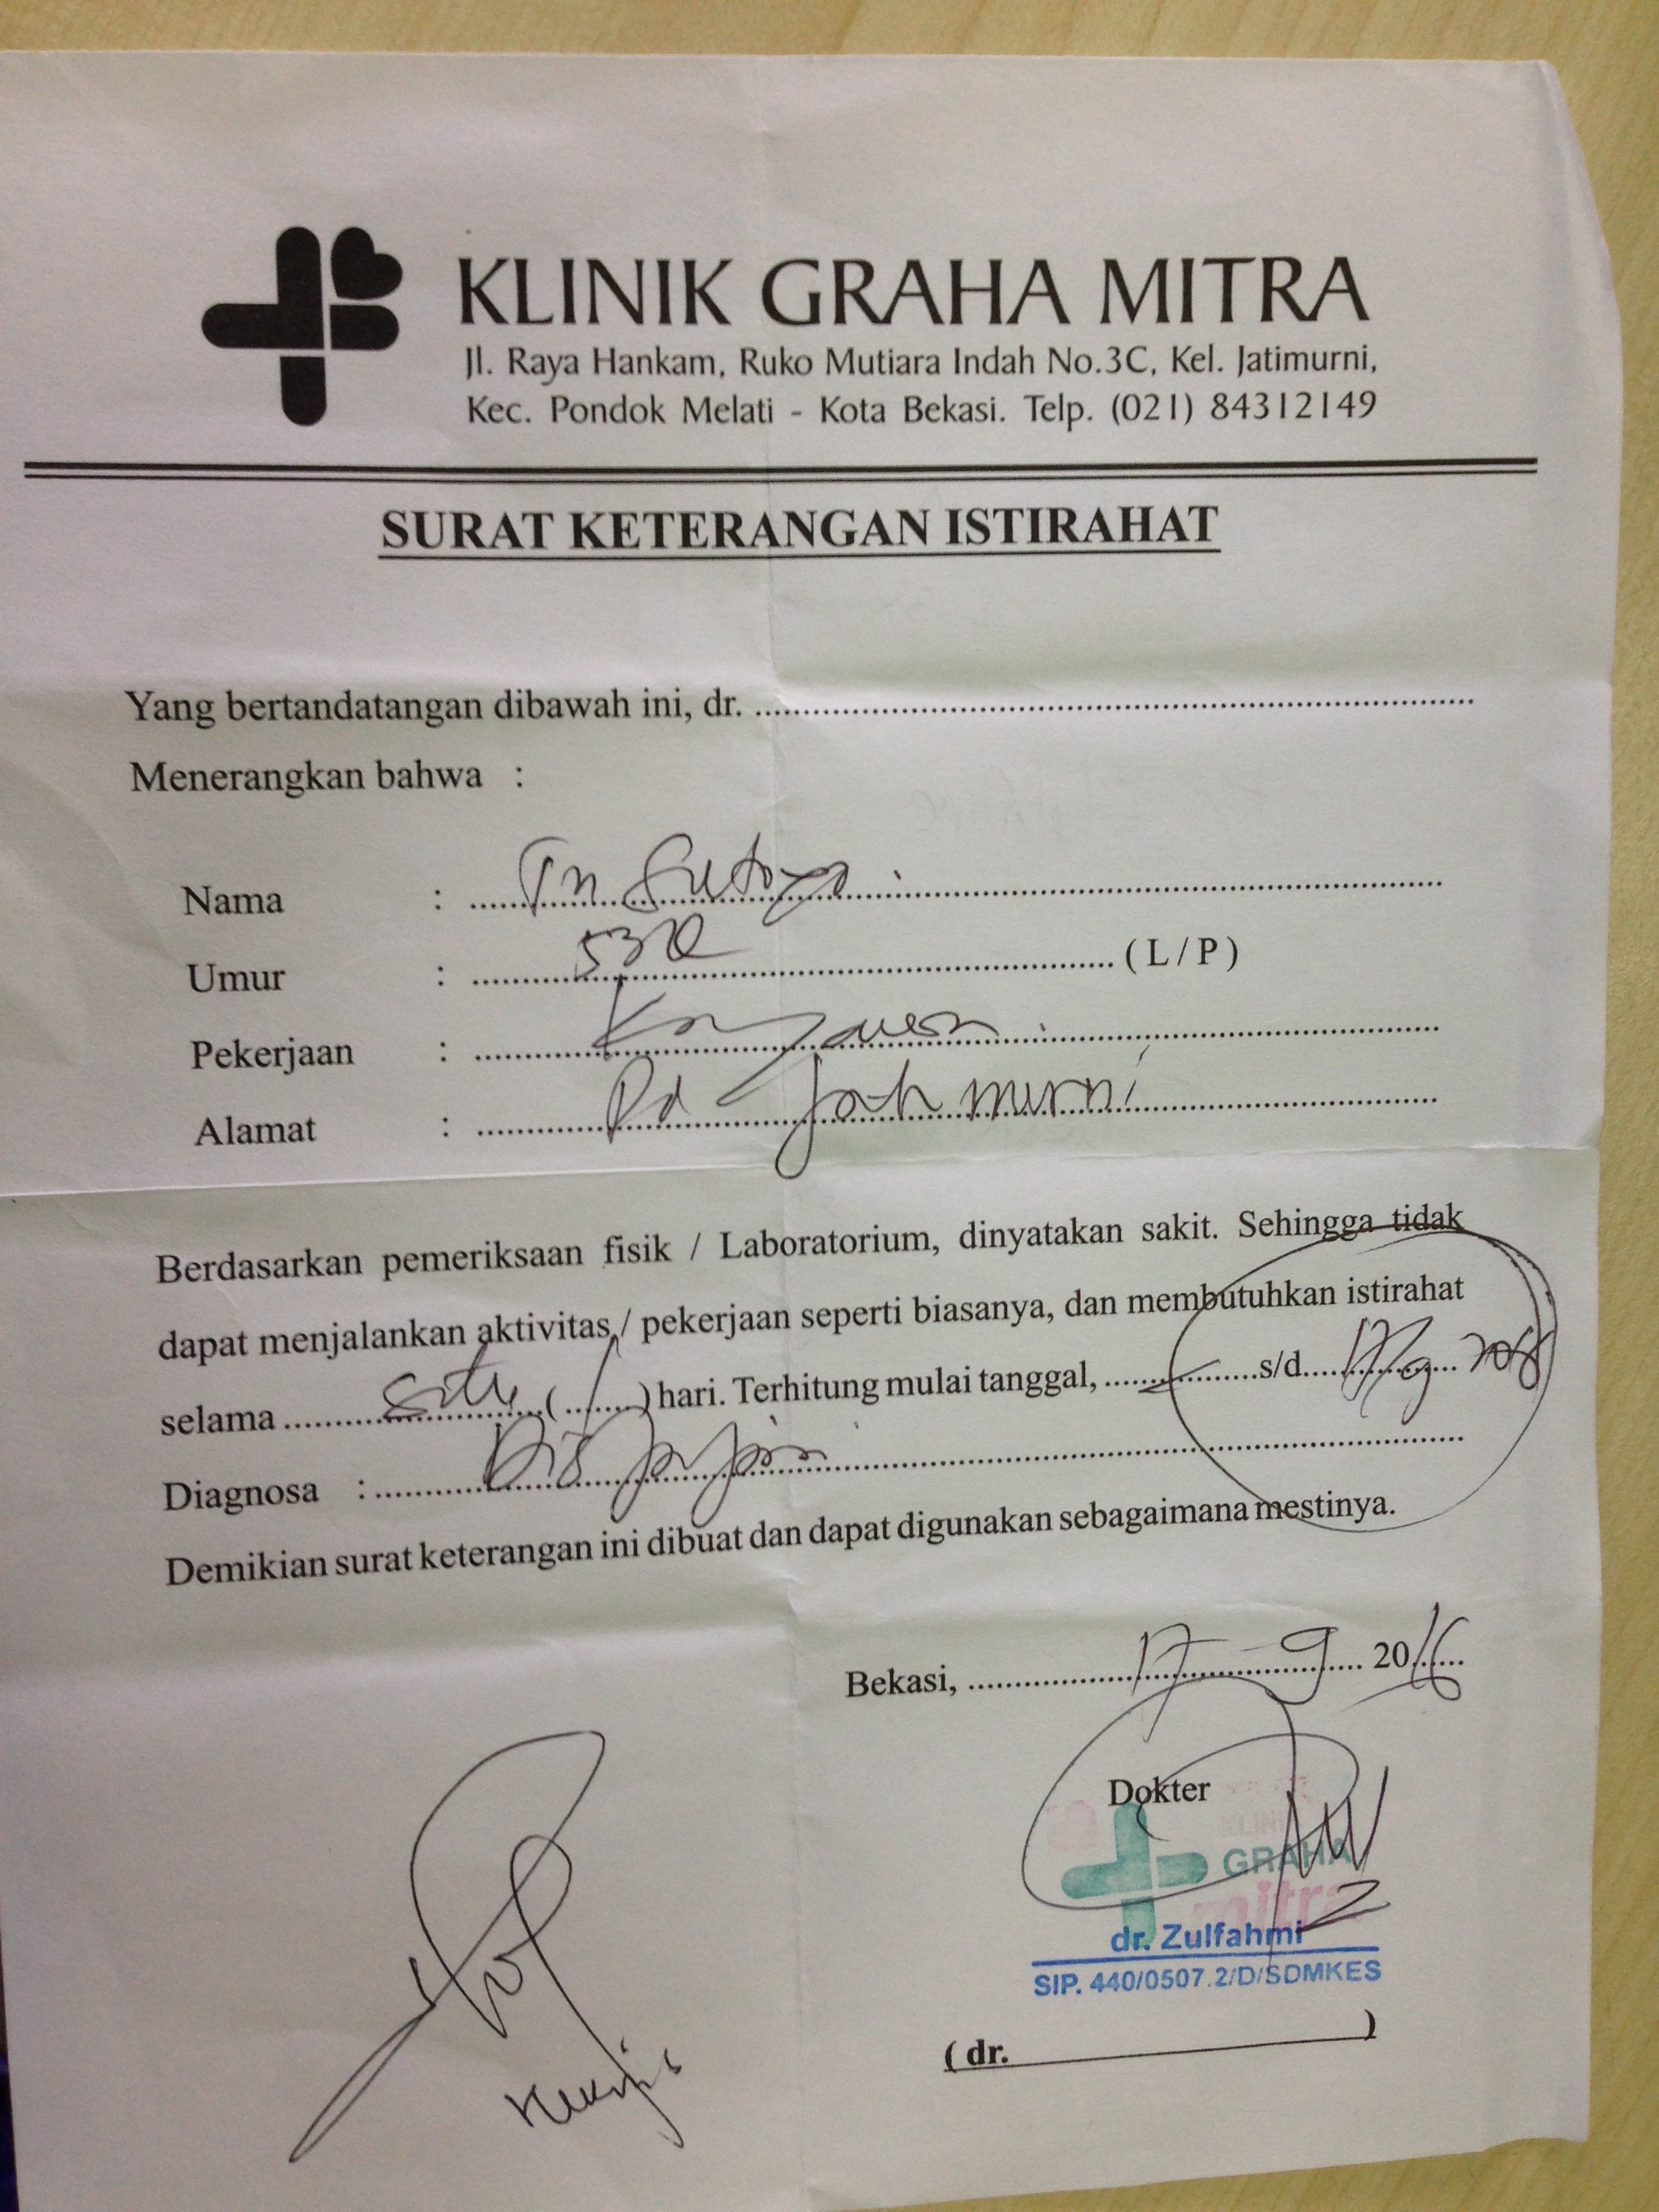 KLINIK GRAHA MITRA
Jl. Raya Hankam, Ruko Mutiara Indah No.3C, Kel. Jatimurni,
Kec. Pondok Melati - Kota Bekasi. Telp. (021) 84312149
SURAT KETERANGAN ISTIRAHAT
Yang bertandatangan dibawah ini, dr. ................
Menerangkan bahwa :
Nama : Tn Sutoyo
Umur : 53 ( L / P )
Pekerjaan : Karyawan
Alamat : Pd Jatimurni
Berdasarkan pemeriksaan fisik / Laboratorium, dinyatakan sakit. Sehingga tidak
dapat menjalankan aktivitas / pekerjaan seperti biasanya, dan membutuhkan istirahat
selama satu ( 1 ) hari. Terhitung mulai tanggal, ........ s/d 17/9
Diagnosa :
Demikian surat keterangan ini dibuat dan dapat digunakan sebagaimana mestinya.
Bekasi, 17 - 9 2016
Dokter
KLINIK
GRAHA
mitra
dr. Zulfahmi
SIP. 440/0507.2/D/SDMKES
( dr. )